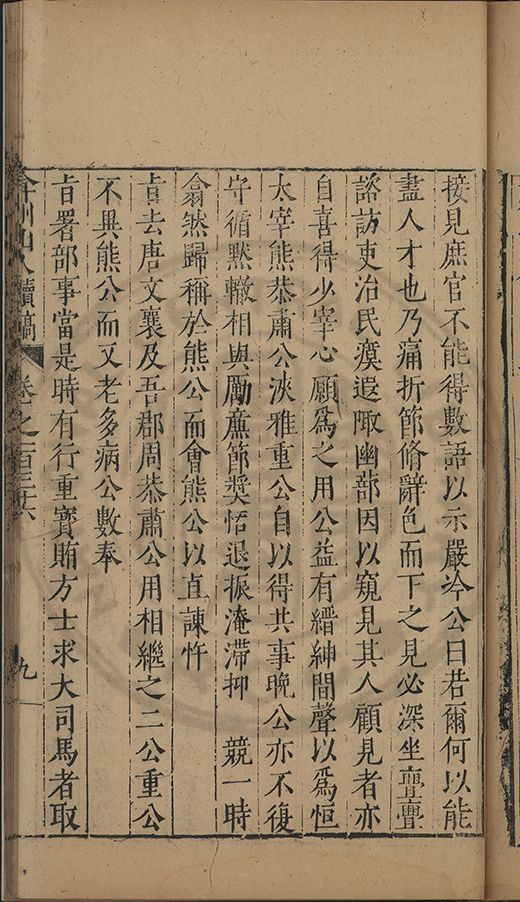 接見庶官不能得數語以示嚴冷公曰若爾何以能
盡人才也乃痛折節脩辭色而下之見必深坐亹亹
諮訪吏治民瘼遐陬幽蔀因以窺見其人顧見者亦
自喜得少宰心願爲之用公益有縉紳間聲以爲恒
太宰熊恭肅公浹雅重公自以得共事晚公亦不復
守循默轍相與勵廉節奬恬退振淹滯抑 競一時
翕然歸稱於熊公而會熊公以直諫忤
旨去唐文襄及吾郡周恭肅公用相繼之二公重公
不異熊公而又老多病公數奉
旨署部事當是時有行重寶賄方士求大司馬者取
弇州山人續稿 卷之百三十六 九